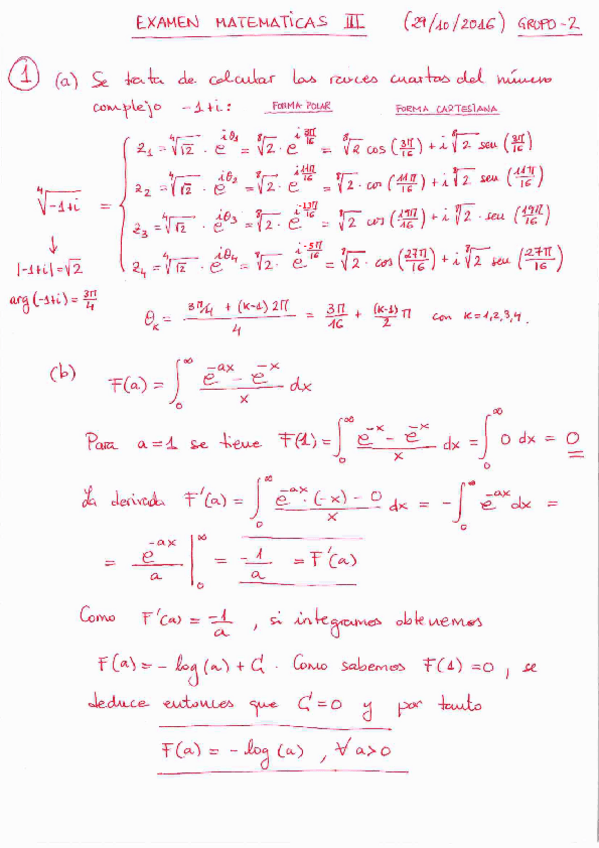 EXAMEN MATEMATICAS III (29/10/2016) GRUPO-2
① (a) Se trata de calcular las raices cuartas del número
complejo -1+i: FORMA POLAR FORMA CARTESIANA
z₁ = ⁴√√2 · e^{iθ₁} = ⁸√2 · e^{i 3π/16} = ⁸√2 cos(3π/16) + i ⁸√2 sen(3π/16)
z₂ = ⁴√√2 · e^{iθ₂} = ⁸√2 · e^{i 11π/16} = ⁸√2 · cos(11π/16) + i ⁸√2 sen(11π/16)
⁴√-1+i =
z₃ = ⁴√√2 · e^{iθ₃} = ⁸√2 · e^{-i 13π/16} = ⁸√2 cos(19π/16) + i ⁸√2 · sen(19π/16)
↓
z₄ = ⁴√√2 · e^{iθ₄} = ⁸√2 · e^{i -5π/16} = ⁸√2 · cos(27π/16) + i ⁸√2 sen(27π/16)
|-1+i| = √2
arg(-1+i) = 3π/4
θₖ = (3π/4 + (k-1)2π)/4 = 3π/16 + (k-1)/2 π con k=1,2,3,4.
(b) F(a) = ∫₀^∞ (e^{-ax} - e^{-x})/x dx
Para a=1 se tiene F(1) = ∫₀^∞ (e^{-x} - e^{-x})/x dx = ∫₀^∞ 0 dx = 0
La derivada F'(a) = ∫₀^∞ (e^{-ax} · (-x) - 0)/x dx = - ∫₀^∞ e^{-ax} dx =
= e^{-ax}/a |₀^∞ = -1/a = F'(a)
Como F'(a) = -1/a , si integramos obtenemos
F(a) = - log(a) + C. Como sabemos F(1) = 0 , se
deduce entonces que C = 0 y por tanto
F(a) = - log(a) , ∀ a>0